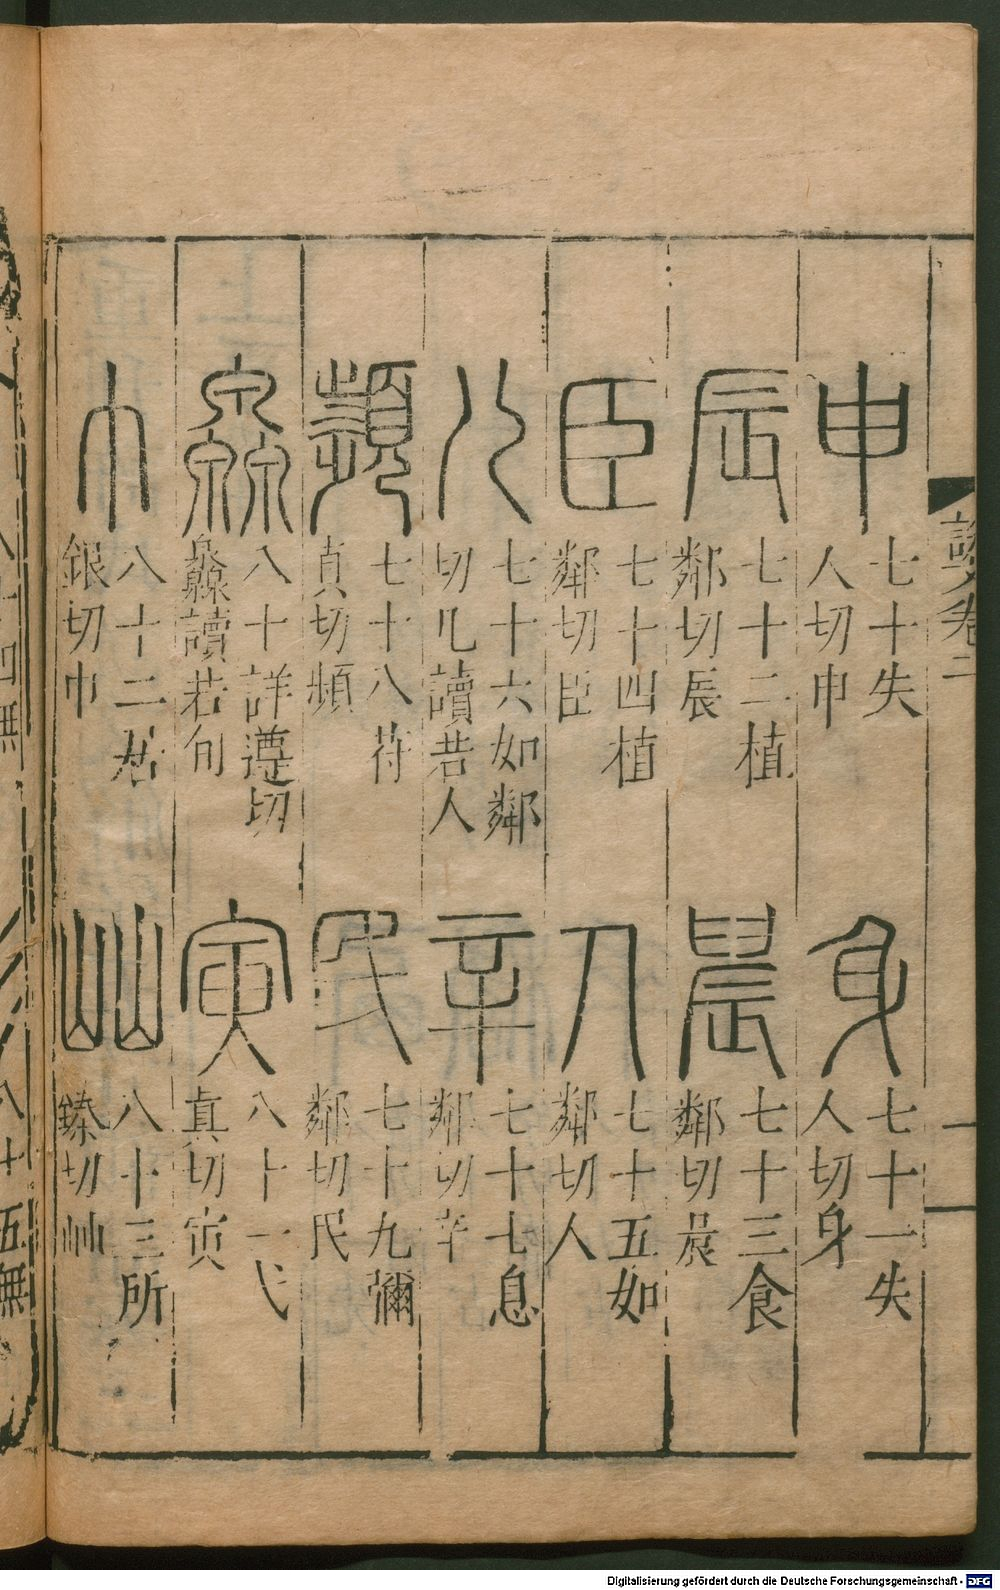 說文卷二
一
申
七十失
人切申
身
七十一失
人切身
辰
七十二植
鄰切辰
晨
七十三食
鄰切晨
臣
七十四植
鄰切臣
人
七十五如
鄰切人
儿
七十六如鄰
切儿讀若人
辛
七十七息
鄰切辛
頻
七十八符
真切頻
民
七十九彌
鄰切民
灥
八十詳遵切
灥讀若旬
寅
八十一弋
真切寅
巾
八十二居
銀切巾
艸
八十三所
臻切艸
Digitalisierung gefördert durch die Deutsche Forschungsgemeinschaft - DFG